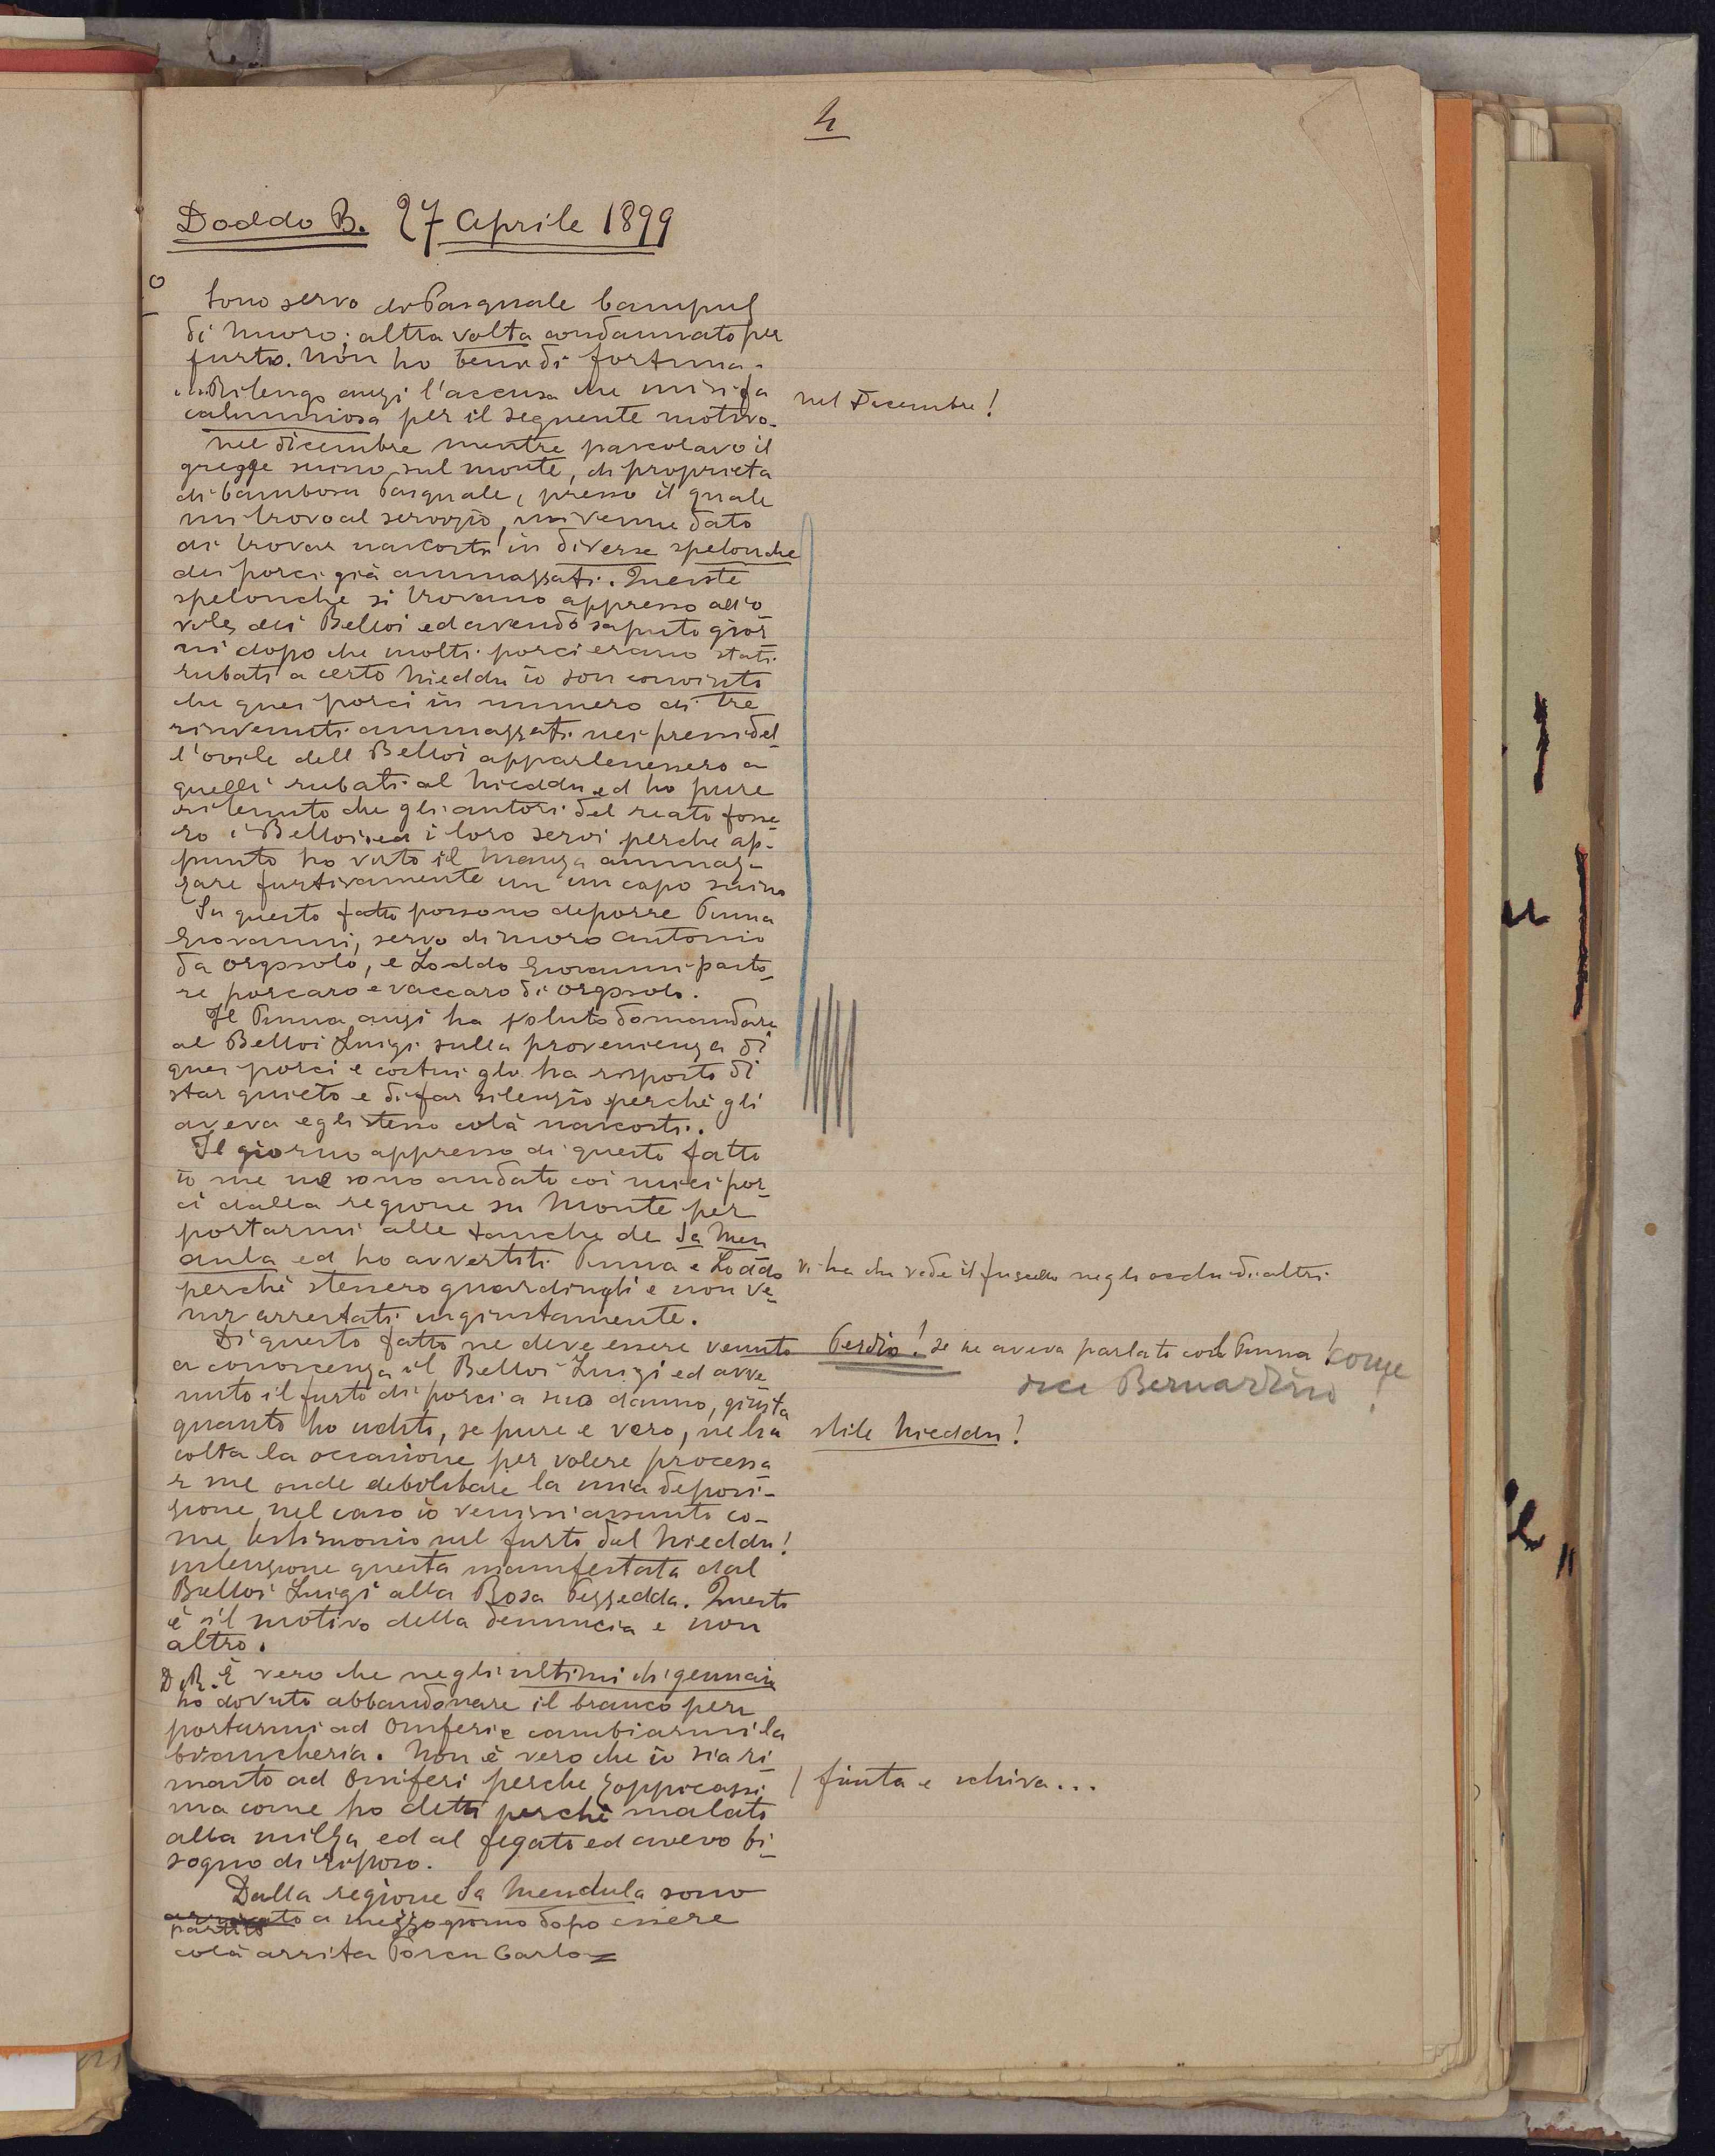 4
Doddo B. 27 Aprile 1899
Sono servo di Pasquale
di Nuoro: altra volta condannato per
furto. Non ho beni di fortuna.
Ritengo anzi l'accusa che mi si fa
nel Dicembre!
calunniosa per il seguente motivo.
nel dicembre mentre pascolavo il
gregge suino sul monte, di proprieta
di Pasquale, presso il quale
mi trovo al servizio, mi venne dato
di trovar nascosti in diverse spelonche
dei porci già ammazzati. Queste
spelonche si trovano appresso all'o
vile dei Belloi ed avendo saputo gior
ni dopo che molti porci erano stati
rubati a certo Nieddu io son convinto
che quei porci in numero di tre
rinvenuti ammazzati nei pressi del
l'ovile dell Belloi appartenessero a
quelli rubati al Nieddu ed ho pure
ritenuto che gli autori del reato fosse
ro i Belloi ed i loro servi perche ap-
punto ho visto il Manza ammaz-
zare furtivamente un un capo suino
Su questo fatto possono deporre Punna
Giovanni, servo di Moro Antonio
da Orgosolo, e Loddo Giovanni pasto
re porcaro e vaccaro di Orgosolo.
Il Punna anzi ha voluto domandare
al Belloi Luigi sulla provenienza di
quei porci e costui gli ha risposto di
star quieto e di far silenzio perchè gli
aveva egli stesso colà nascosti.
Il giorno appresso di questo fatto
io me ne sono andato coi miei por
ci dalla regione su Monte per
portarmi alle tanche de Sa Men
dula ed ho avvertiti Punna e Loddo
vi ha chi vede il fuscello negli occhi di altri
perchè stessero guardinghi e non ve
nir arrestati ingiustamente.
Di questo fatto ne deve essere venuto
Perdio! se ne aveva parlato col Punna! come
dice Bernardino!
a conoscenza il Belloi Luigi ed avve
nuto il furto di porci a suo danno, giusta
quanto ho udito, se pure è vero, ne ha
stile Nieddu!
colta la occasione per volere processa
r me onde debolitare la mia deposi-
zione nel caso io venissi assunto co-
me testimonio nel furto dal Nieddu!
intenzione questa manifestata dal
Belloi Luigi alla Rosa Pezzedda. Questo
è il motivo della denuncia e non
altro.
D.R. È vero che negli ultimi di gennaio
ho dovuto abbandonare il branco per
portarmi ad Oniferi e cambiarmi la
biancheria. Non è vero che io sia ri
masto ad Oniferi perche zoppicassi
finta e schiva...
ma come ho detto perchè malato
alla milza ed al fegato ed avevo bi
sogno di riposo.
Dalla regione Sa Mendula sono
partito a mezzogiorno dopo essere
colà arrita Porcu Carlo